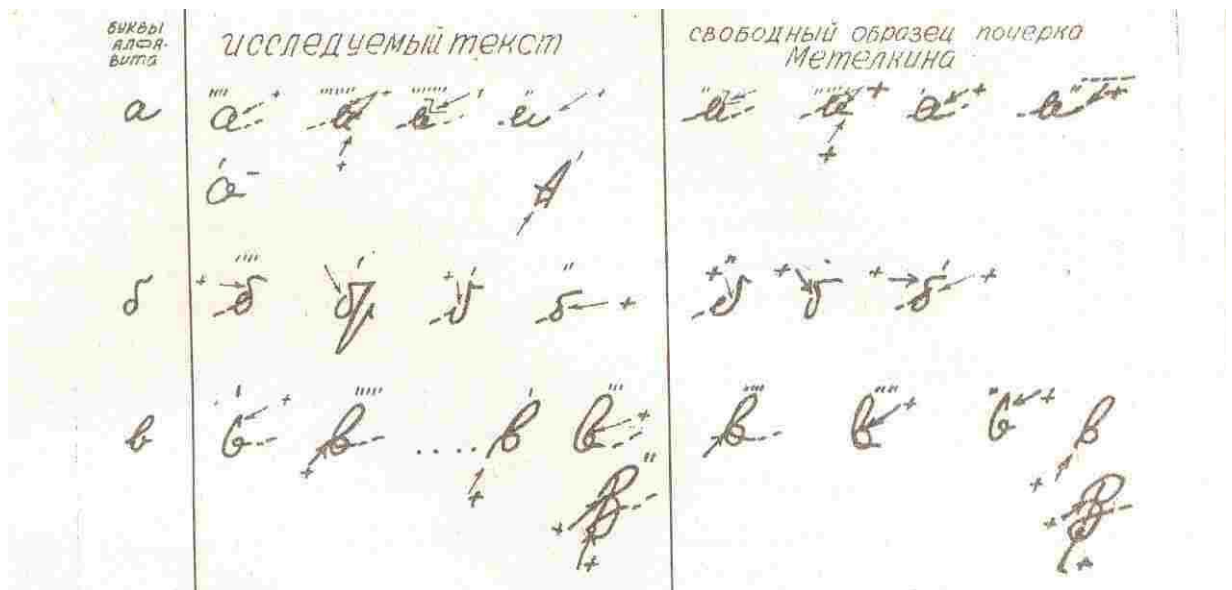 буквы алфа-вита
исследуемый текст
свободный образец почерка Метелкина
а а а а а а а а а
а А
б б б б б б б б
в в в в в в в в в
В В